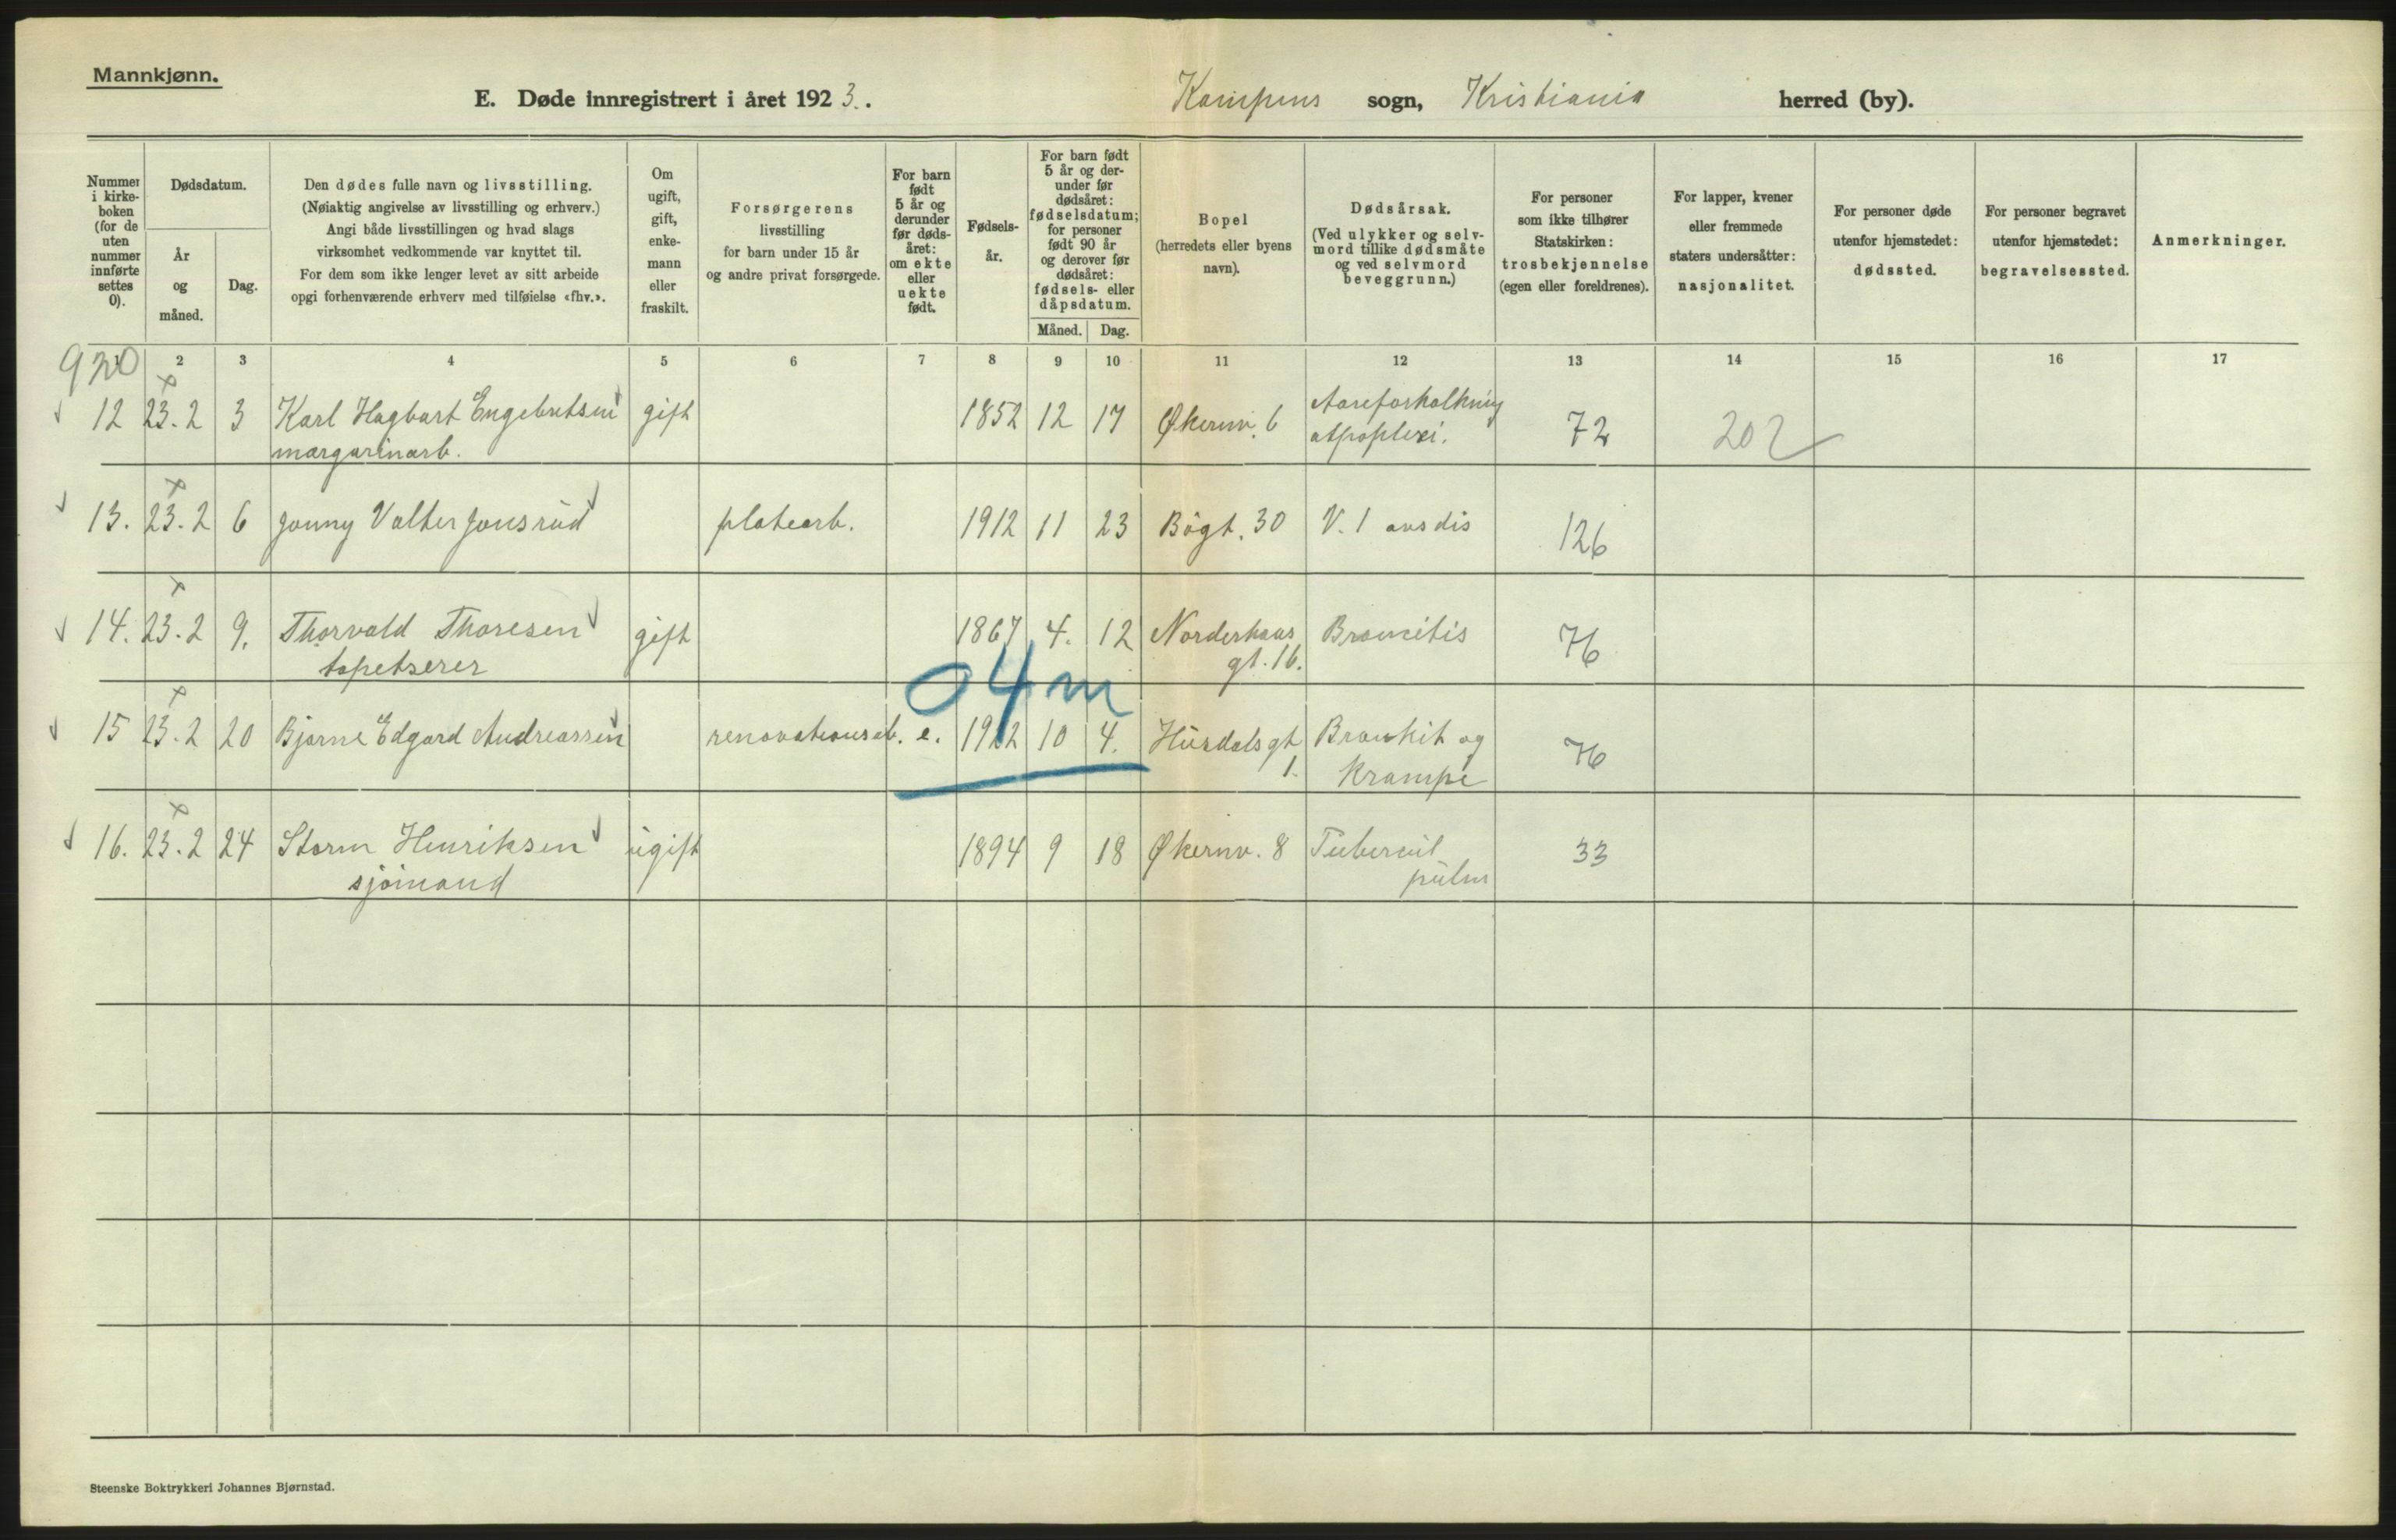 Mannkjønn.
E. Døde innregistrert i året 1923. Kampens sogn, Kristiania herred (by).
Nummer i kirke-boken (for de uten nummer innførte settes 0).
Dødsdatum.
År og måned.
Dag.
Den dødes fulle navn og livsstilling.
(Nøiaktig angivelse av livsstilling og erhverv.)
Angi både livsstillingen og hvad slags
virksomhet vedkommende var knyttet til.
For dem som ikke lenger levet av sitt arbeide
opgi forhenværende erhverv med tilføielse «fhv.».
Om ugift, gift, enke-mann eller fraskilt.
Forsørgerens
livsstilling
for barn under 15 år
og andre privat forsørgede.
For barn født 5 år og derunder før døds-året: om ekte eller uekte født.
Fødsels-år.
For barn født 5 år og der-under før dødsåret: fødselsdatum; for personer født 90 år og derover før dødsåret: fødsels- eller dåpsdatum.
Måned. Dag.
Bopel
(herredets eller byens
navn).
Dødsårsak.
(Ved ulykker og selv-
mord tillike dødsmåte
og ved selvmord
beveggrunn.)
For personer
som ikke tilhører
Statskirken:
trosbekjennelse
(egen eller foreldrenes).
For lapper, kvener
eller fremmede
staters undersåtter:
nasjonalitet.
For personer døde
utenfor hjemstedet:
dødssted.
For personer begravet
utenfor hjemstedet:
begravelsessted.
Anmerkninger.
1 2 3 4 5 6 7 8 9 10 11 12 13 14 15 16 17
920
12 23.2 3 Karl Hagbart Engebretsen gift 1852 12 17 Økernv. 6 Aareforkalkning 72 202
margarinarb. atpoplexi.
13. 23.2 6 Jonny Valter Jonsrud platearb. 1912 11 23 Bøgt. 30 V. 1 ans dis 126
14. 23.2 9. Thorvald Thoresen gift 1867 4. 12 Norderhaus Broncitis 76
tapetserer gt. 16.
04m
15 23.2 20 Bjarne Edgard Andreassen renovationsarb. e. 1922 10 4. Hurdalsgt Bronkit og 76
1. Krampe
16. 23.2 24 Storm Henriksen ugift 1894 9 18 Økernv. 8 Tubercul 33
sjømand pulm
Steenske Boktrykkeri Johannes Bjørnstad.